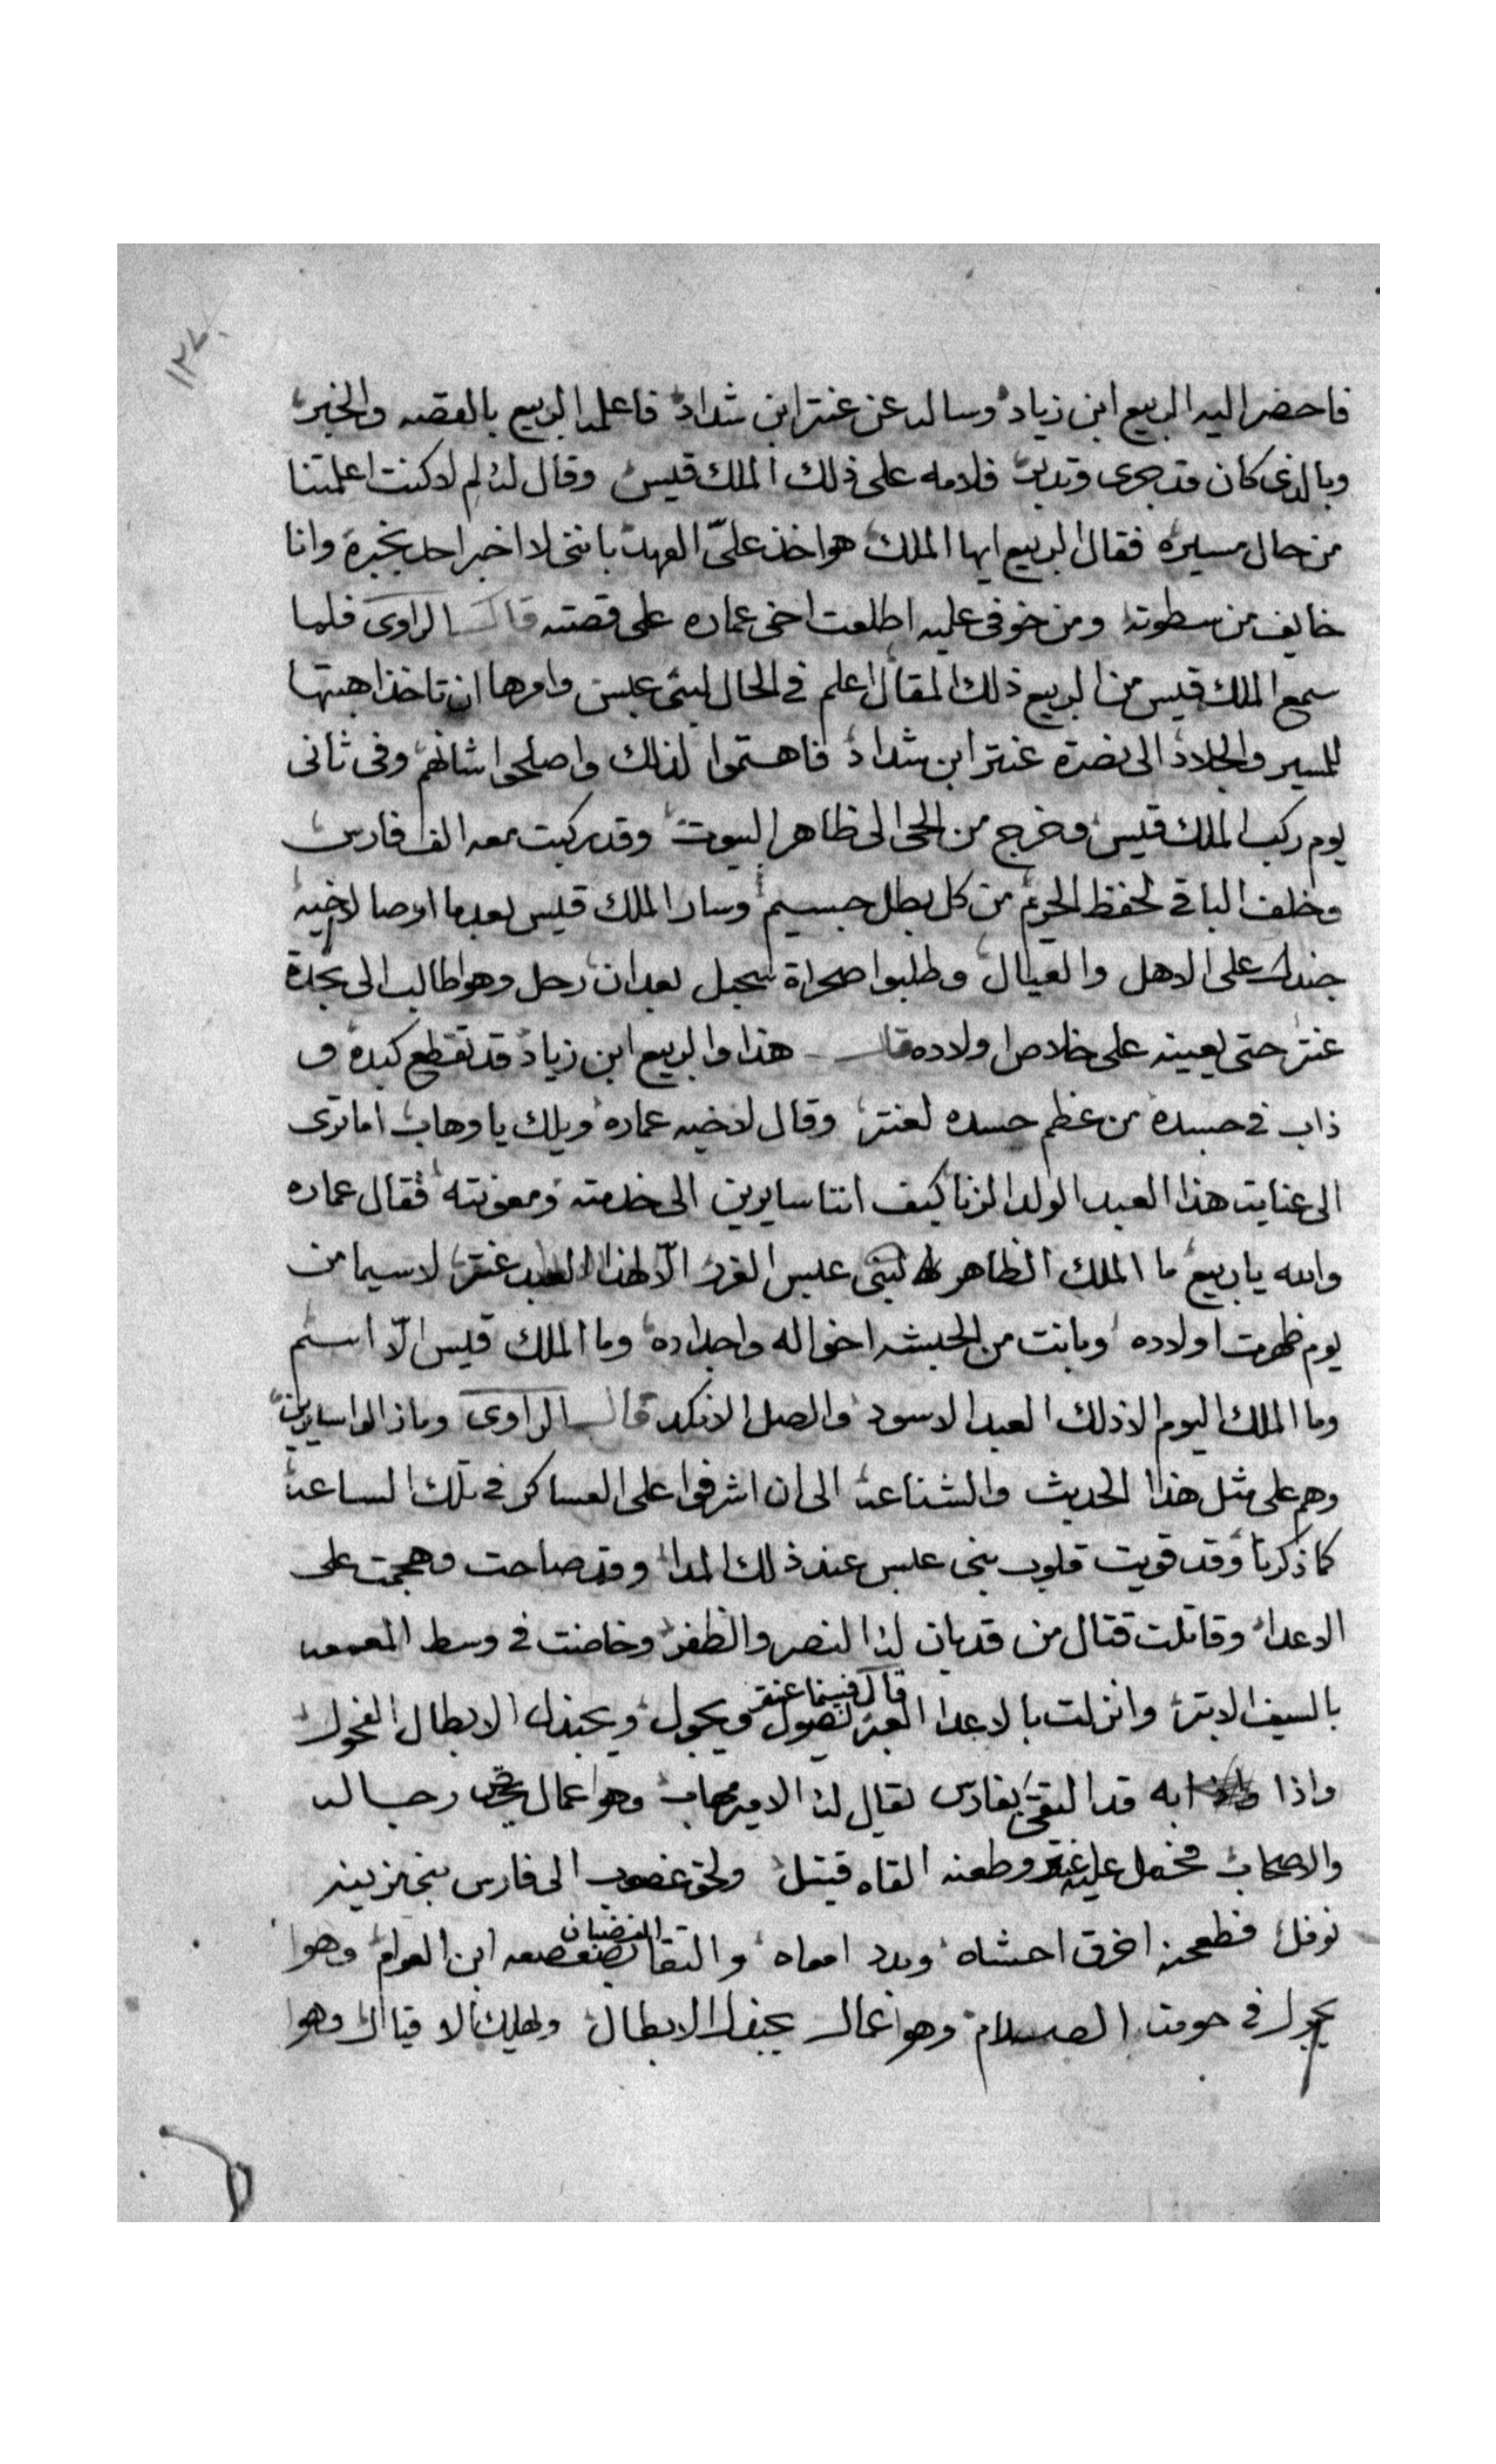 ١٢٧
فاحضر اليه الربيع ابن زياد وساله عن عنتر ابن شداد فاعلمه الربيع بالقصه والخبر
وبالذى كان قد جرى وتدبر فلامه على ذلك الملك قيس وقال له لم لا كنت اعلمتنا
من حال مسيره فقال الربيع ايها الملك هوا خذ علىّ العهد باننى لا اخبر احد بخبره وانا
خايف من سطوته ومن خوفى عليه اطلعت اخى عماره على قصته قال الراوى فلما
سمع الملك قيس من الربيع ذلك المقال اعلم فى الحال لبنى عبس وامرها ان تاخذ اهبتها
للمسير والجلاد الى نصرة عنتر ابن شداد فاهتموا لذلك واصلحوا شانهم وفى ثانى
يوم ركب الملك قيس وخرج من الحى الى ظاهر البيوت وقد ركبت معه الف فارس
وخلف الباقى لحفظ الحريم من كل بطل جسيم وسار الملك قيس بعدما اوصا لاخيه
جندل على الاهل والعيال وطلبوا صحراة سجبل بعد ان رحل وهوا طالب الى نجدة
عنتر حتى يعينه على خلاص اولاده قال هذا والربيع ابن زياد قد تقطع كبده و
ذاب فى جسده من عظم حسده لعنتر وقال لاخيه عماره ويلك يا وهاب اما ترى
الى عنايت هذا العبد الولد الزنا كيف اننا سايرين الى خدمته ومعونته فقال عماره
والله يا ربيع ما الملك الظاهر لبنى عبس الغرر الّا لهذا العبد عنتر لاسيما من
يوم ظهرت اولاده وبانت من الحبشه اخواله واجداده وما الملك قيس الّا اسم
وما الملك اليوم الا ذلك العبد الاسود والصل الانكد قال الراوى وما زالوا سايرين
وهم على مثل هذا الحديث والشناعه الى ان اشرفوا على العساكر فى تلك الساعه
كما ذكرنا وقد قويت قلوب بنى عبس عند ذلك المدا وقد صاحت وهجمت على
الاعدا وقاتلت قتال من قد بان له النصر والظفر وخاضت فى وسط المعمعه
بالسيف الابتر وانزلت بالاعدا العبر قال فبينما عنتر يصول ويجول ويجندل الابطال الفحول
واذا به قد التقى بفارس يقال له الامير مهاب وهوا عمال رجاله
والاصحاب فحمل عليه عنتر وطعنه القاه قتيل ولحق غصوب الى فارس بنى مزينه
نوفل فطعنه اخرق احشاه وبدد امعاه والتقا الغضبان بصعصعه ابن العوام وهوا
يجول فى حومت الصدام وهوا عمال يجندل الابطال ويهلك الاقيال وهوا